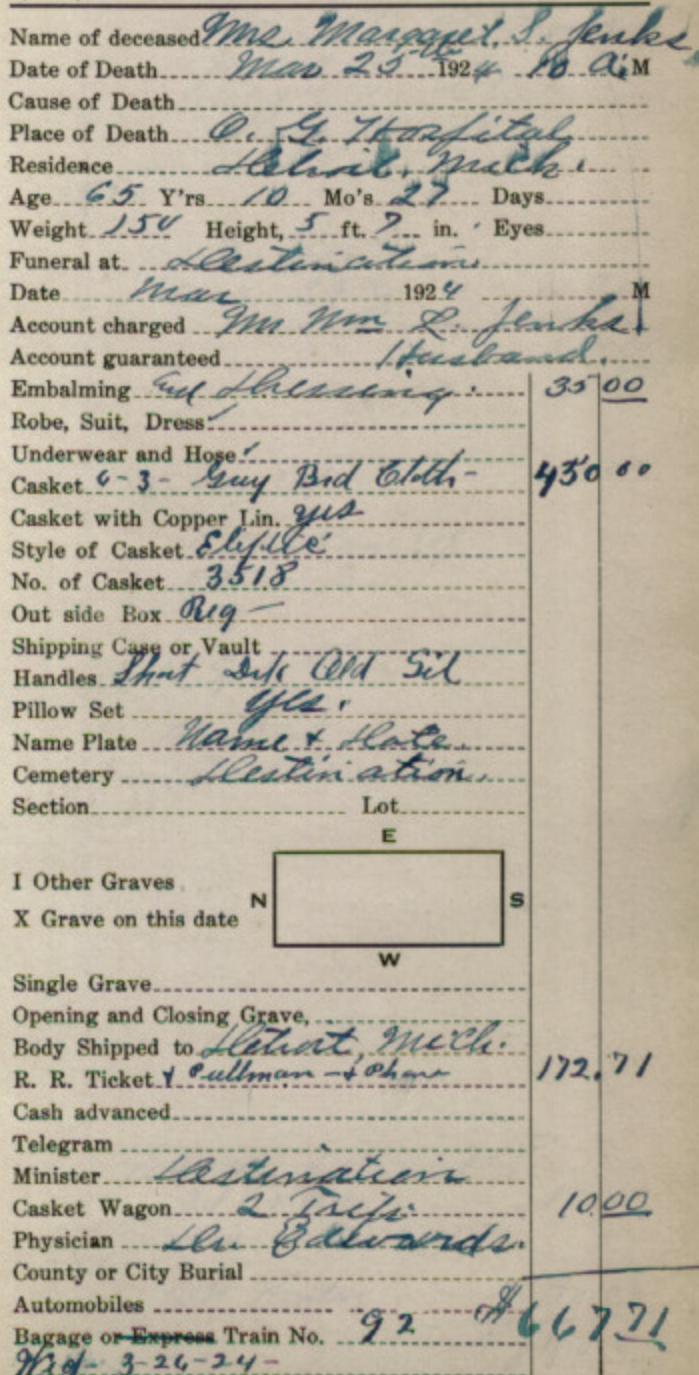 Name of deceased Mrs. Margaret S. Jenks
Date of Death Mar 25 1924 10 A.M
Cause of Death
Place of Death O. G. Hospital
Residence Detroit, Mich.
Age 65 Y'rs 10 Mo's 27 Days
Weight 150 Height, 5 ft. 7 in. Eyes
Funeral at Destination
Date Mar 1924 M
Account charged Mr Wm L. Jenks.
Account guaranteed Husband.
Embalming and Dressing. 35 00
Robe, Suit, Dress ✓
Underwear and Hose ✓
Casket 6-3- Gray Brd Cloth- 450 00
Casket with Copper Lin. yes
Style of Casket
No. of Casket 3518
Out side Box Reg -
Shipping Case or Vault
Handles Short Old Sil
Pillow Set Yes.
Name Plate Name & Date.
Cemetery Destination.
Section Lot
E
I Other Graves
N S
X Grave on this date
W
Single Grave
Opening and Closing Grave,
Body Shipped to Detroit, Mich.
R. R. Ticket & Pullman - & 172.71
Cash advanced
Telegram
Minister Destination
Casket Wagon 2 Trips. 10 00
Physician Dr. Edwards.
County or City Burial
Automobiles
Bagage or Express Train No. 92 $667 71
Wed - 3-26-24-